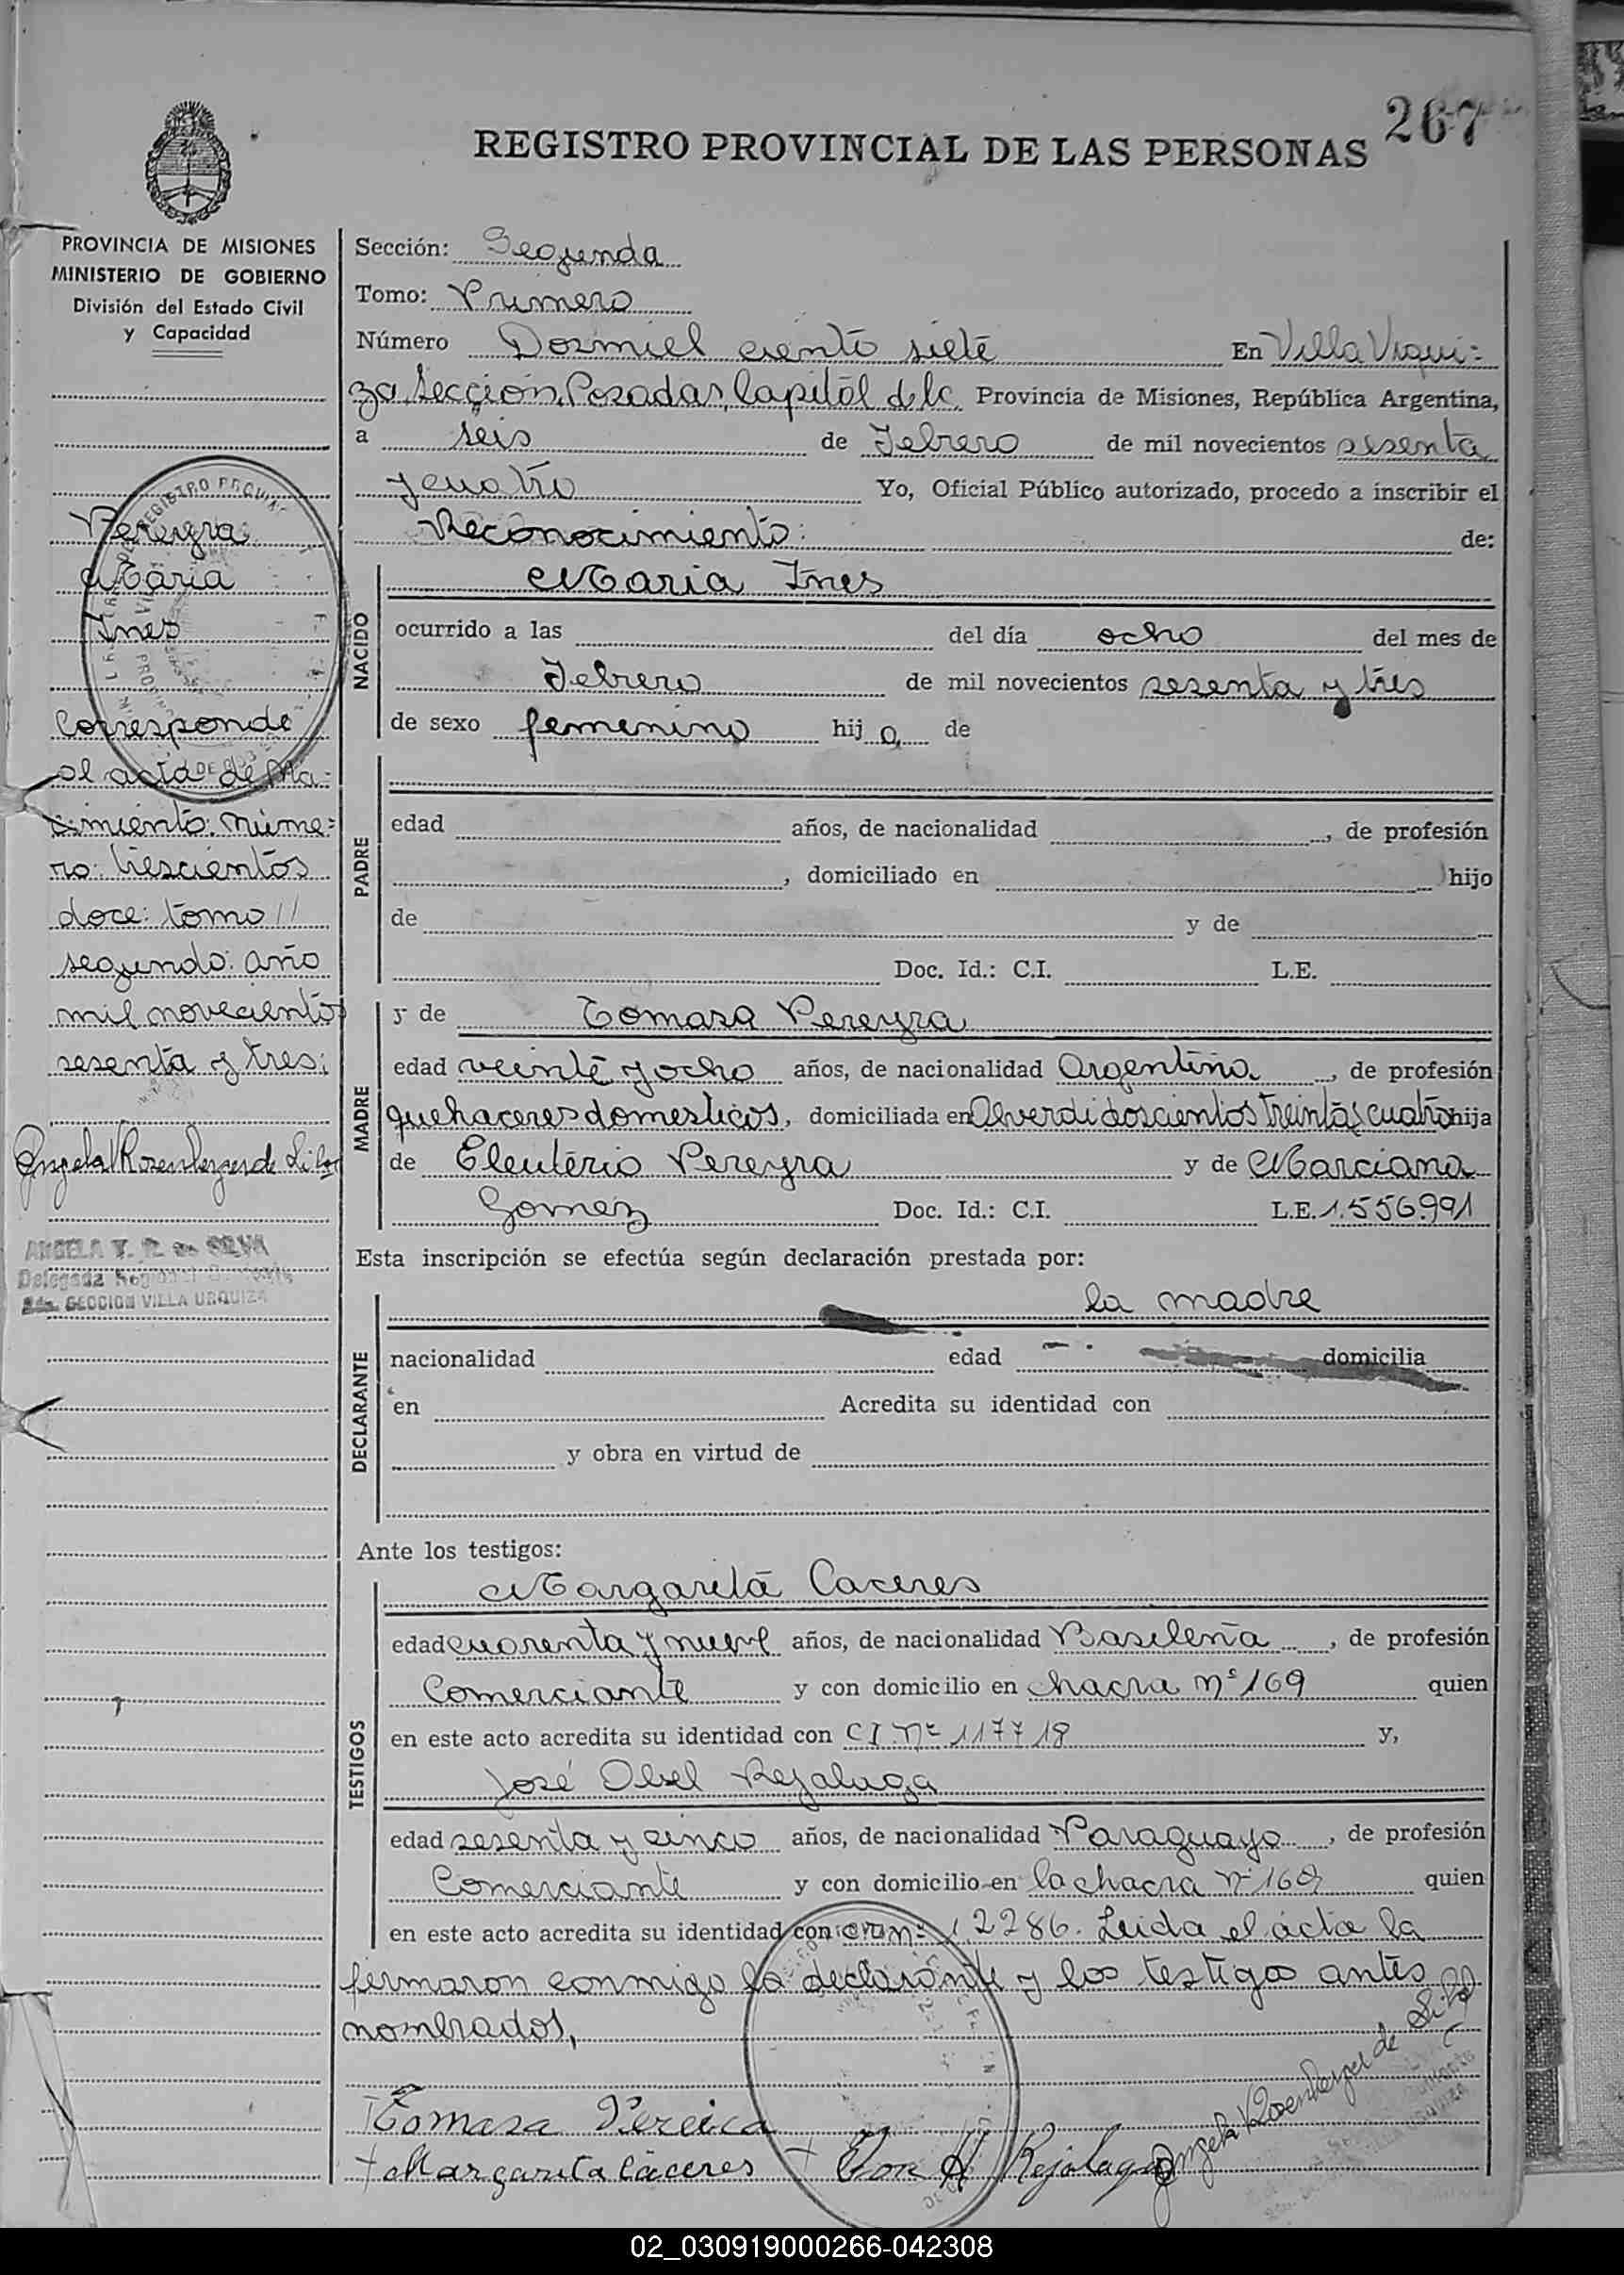 267
REGISTRO PROVINCIAL DE LAS PERSONAS
PROVINCIA DE MISIONES
MINISTERIO DE GOBIERNO
División del Estado Civil
y Capacidad
Pereyra
Maria
Ines
Corresponde
al acta de Na-
cimiento: núme-
ro: trescientos
doce: tomo //
segundo: año
mil novecientos
sesenta y tres:
Angela Rosenberger de Silva
ANGELA V. R. de SILVA
Delegada
2da. SECCION VILLA URQUIZA
Sección: Segunda
Tomo: Primero
Número Dosmiel ciento siete En Villa Urqui-
za, Sección, Posadas, Capital d la Provincia de Misiones, República Argentina,
a seis de Febrero de mil novecientos sesenta
y cuatro Yo, Oficial Público autorizado, procedo a inscribir el
Reconocimiento: de:
NACIDO
Maria Ines
ocurrido a las del día ocho del mes de
Febrero de mil novecientos sesenta y tres
de sexo femenino hij a de
PADRE
edad años, de nacionalidad , de profesión
, domiciliado en hijo
de y de
Doc. Id.: C.I. L.E.
MADRE
y de Tomasa Pereyra
edad veinte y ocho años, de nacionalidad Argentina , de profesión
quehaceres domesticos, domiciliada en Alverdi doscientos treinta y cuatro hija
de Eleuterio Pereyra y de Marciana
Gomez Doc. Id.: C.I. L.E. 1.556.991
Esta inscripción se efectúa según declaración prestada por:
DECLARANTE
la madre
nacionalidad edad domicilia
en Acredita su identidad con
y obra en virtud de
Ante los testigos:
TESTIGOS
Margarita Caceres
edad cuarenta y nueve años, de nacionalidad Basileña , de profesión
Comerciante y con domicilio en chacra nº 169 quien
en este acto acredita su identidad con C I. Nº 117718 y,
José Rejalaga
edad sesenta y cinco años, de nacionalidad Paraguayo , de profesión
Comerciante y con domicilio en la chacra Nº 169 quien
en este acto acredita su identidad con 12286. Leida el acta la
firmaron conmigo la declarante y los testigos antes
nombrados,
Tomasa Pereira
+ Margarita Caceres + Rejalaga Angela Rosenberger de Silva
02_030919000266-042308